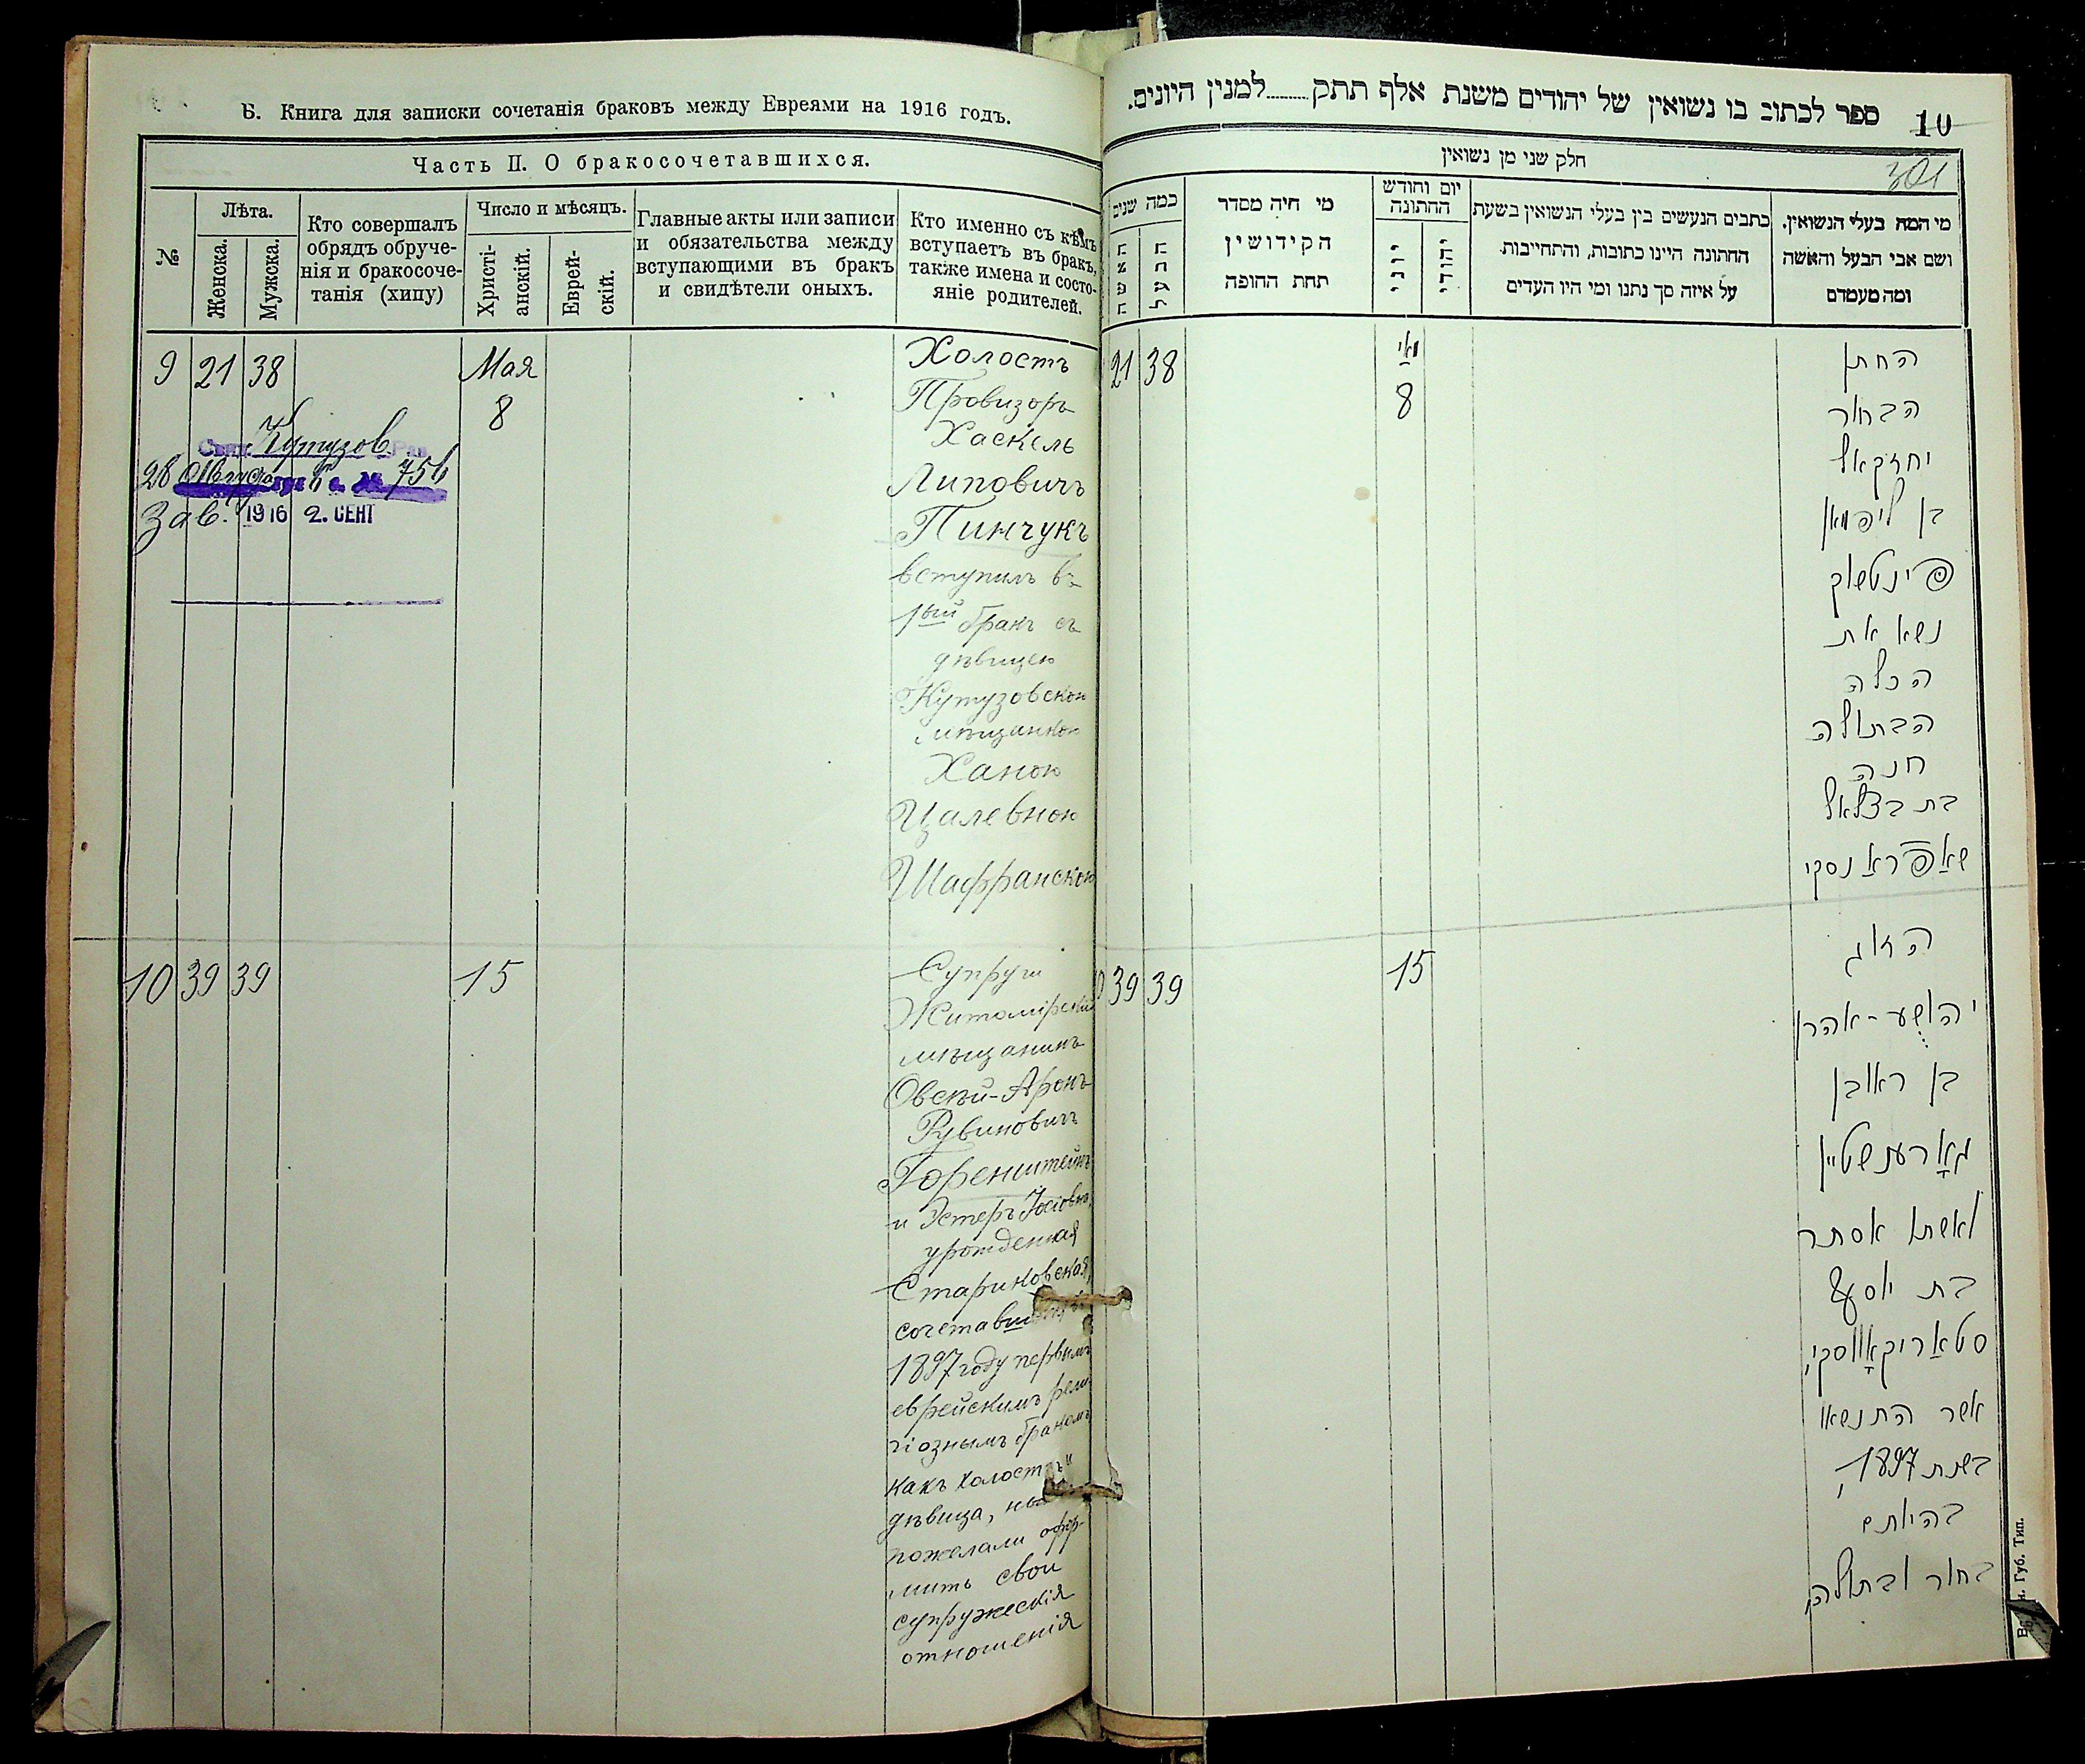 Б. Книга для записки сочетанія браковъ между Евреями на 1916 годъ.
Часть II. О бракосочетавшихся.
№
Лѣта.
Женска.
Мужска.
Кто совершалъ
обрядъ обруче-
нія и бракосоче-
танія (хипу)
Число и мѣсяцъ.
Христі-
анскій.
Еврей-
скій.
Главные акты или записи
и обязательства между
вступающими въ бракъ
и свидѣтели оныхъ.
Кто именно съ кѣмъ
вступаетъ въ бракъ,
также имена и состо-
яніе родителей.
9 21 38 Мая
8
Кутузов
28 Августа № 756
Зав. 1916 2. СЕНТ
Холостъ
Провизоръ
Хаскель
Липовичъ
Пинчукъ
вступилъ въ
1ый бракъ съ
дѣвицею
Кутузовскою
мѣщанкою
Ханою
Цалевною
Шафранскою
10 39 39 15
Супруги
Житомірскій
мѣщанинъ
Овсѣй-Аронъ
Рувиновичъ
Горенштейнъ
и Эстеръ Іосіовна,
урожденная
Стариковская,
сочетавшіеся
1897 году первымъ
еврейскимъ рели-
гіознымъ бракомъ
какъ холостъ и
дѣвица,
пожелали офор-
мить свои
супружескія
отношенія
ספר לכתוב בו נשואין של יהודים משנת אלף תתק.........למנין היונים.
10
301
חלק שני מן נשואין
כמה שנים
האשה
הבעל
מי היה מסדר
הקידושין
תחת החופה
יום וחודש
החתונה
יוני
יהודי
כתבים הנעשים בין בעלי הנשואין בשעת
החתונה היינו כתובות, והתחייבות
על איזה סך נתנו ומי היו העדים
מי המה בעלי הנשואין.
ושם אבי הבעל והאשה
ומה מעמדם
21 38 מאי
8
החתן
הבחור
יחזקאל
בן ליפמאן
פינטשוק
נשא את
הכלה
הבתולה
חנה
בת בצלאל
שאַפֿראַנסקי
10 39 39 15
הזוג
יהושע-אהרן
בן ראובן
גאָרענשטיין
ואשתו אסתר
בת יוסף
סטאַריקאָווסקי,
אשר התנשאו
בשנת 1897,
בהיותם
בחור ובתולה,
Губ. Тип.